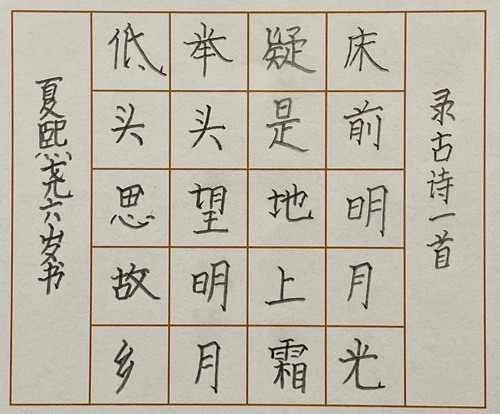 录古诗一首
床前明月光
疑是地上霜
举头望明月
低头思故乡
夏熙尧六岁书